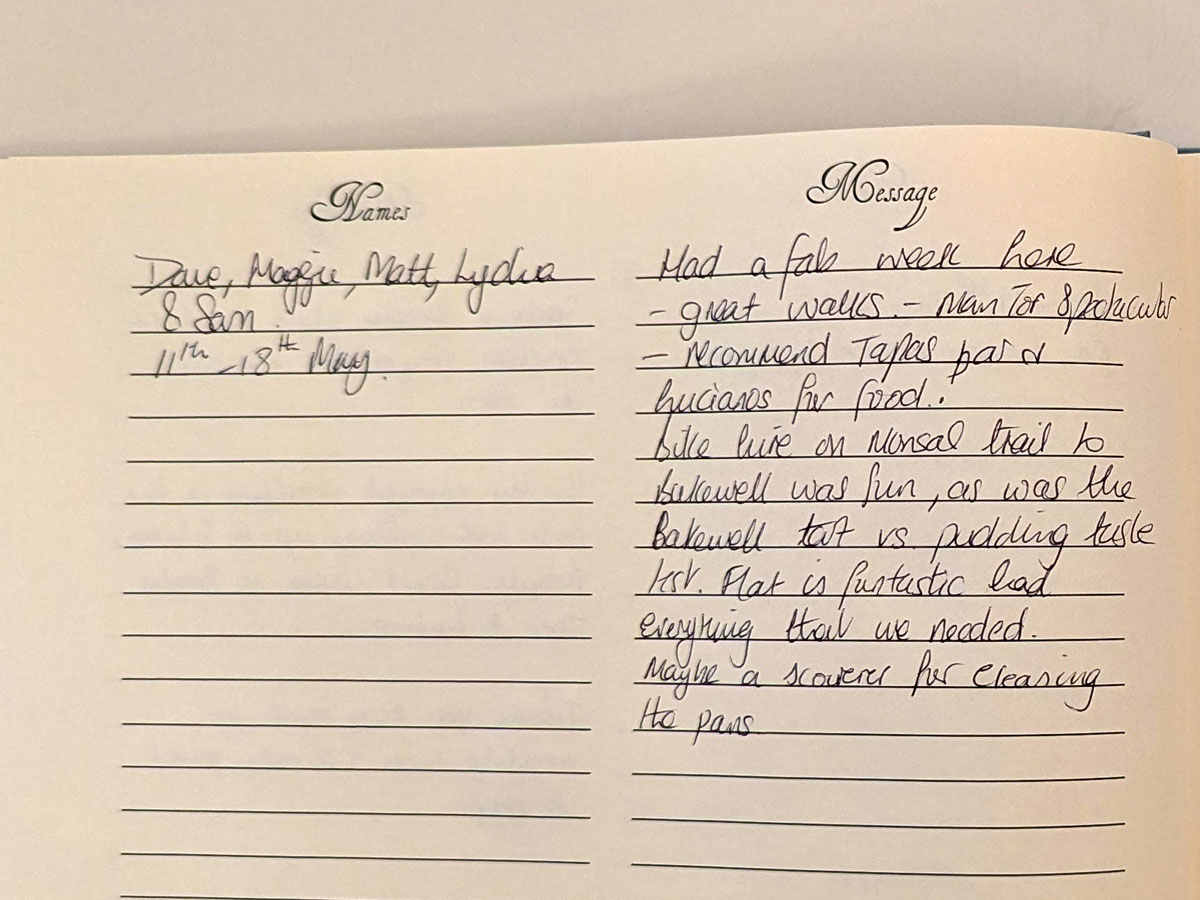 Names
Dave, Maggie, Matt, Lydia
& Sam
11th - 18th May.
Message
Had a fab week here
- great walks. - Mam Tor Spectacular
- recommend Tapas bar &
Lucianos for food..
bike hire on Monsal trail to
Bakewell was fun, as was the
Bakewell tart vs. pudding taste
test. Flat is fantastic had
everything that we needed.
Maybe a scourer for cleaning
the pans